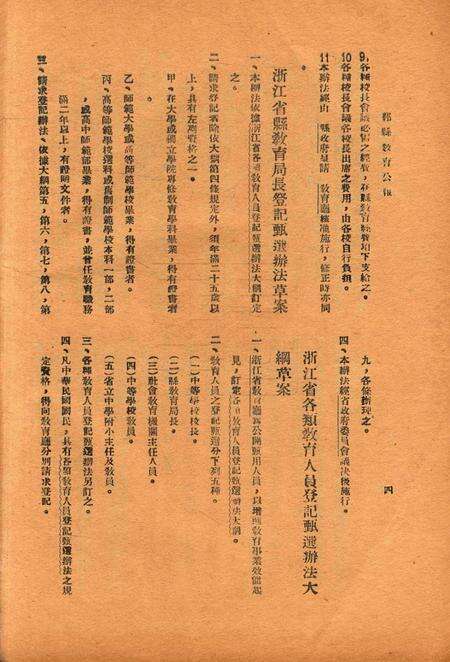 鄞縣教育公報
9,各種校長會議必需之經費,在縣教育經費項下支給之。
10各種校長會議各校長出席之費用,由各校自行負擔。
11本辦法經由 縣政府呈請 教育廳核准施行,修正時亦同
。
浙江省縣教育局長登記甄選辦法草案
一、本辦法依據浙江省各類教育人員登記甄選辦法大綱訂定
之。
二、請求登記者除依大綱第四條規定外,須年滿二十五歲以
上,具有左列資格之一。
甲、在大學或獨立學院專修教育學科畢業,得有證書者
乙、師範大學或高等師範學校畢業,得有證書者。
丙、高等師範學校選科或舊制師範學校本科一部,二部
,或高中師範部畢業,得有證書,並曾任教育職務
滿二年以上,有證明文件者。
三、請求登記辦法、依據大綱第五,第六,第七,第八,第
九,各條辦理之。
四、本辦法經省政府委員會議決後施行。
浙江省各類教育人員登記甄選辦法大
綱草案
一、浙江省教育廳爲公開甄用人員,以增進教育事業效能起
見,訂定各種教育人員登記甄選辦法大綱。
二、教育人員之登記甄選分下列五種。
(一)中等學校校長。
(二)縣教育局長。
(三)社會教育機關主任人員。
(四)中等學校教員。
(五)省立中學附小主任及教員。
三、各種教育人員登記甄選辦法另訂之。
四、凡中華民國國民,具有各類教育人員登記甄選辦法之規
定資格,得向教育廳分別請求登記。
四